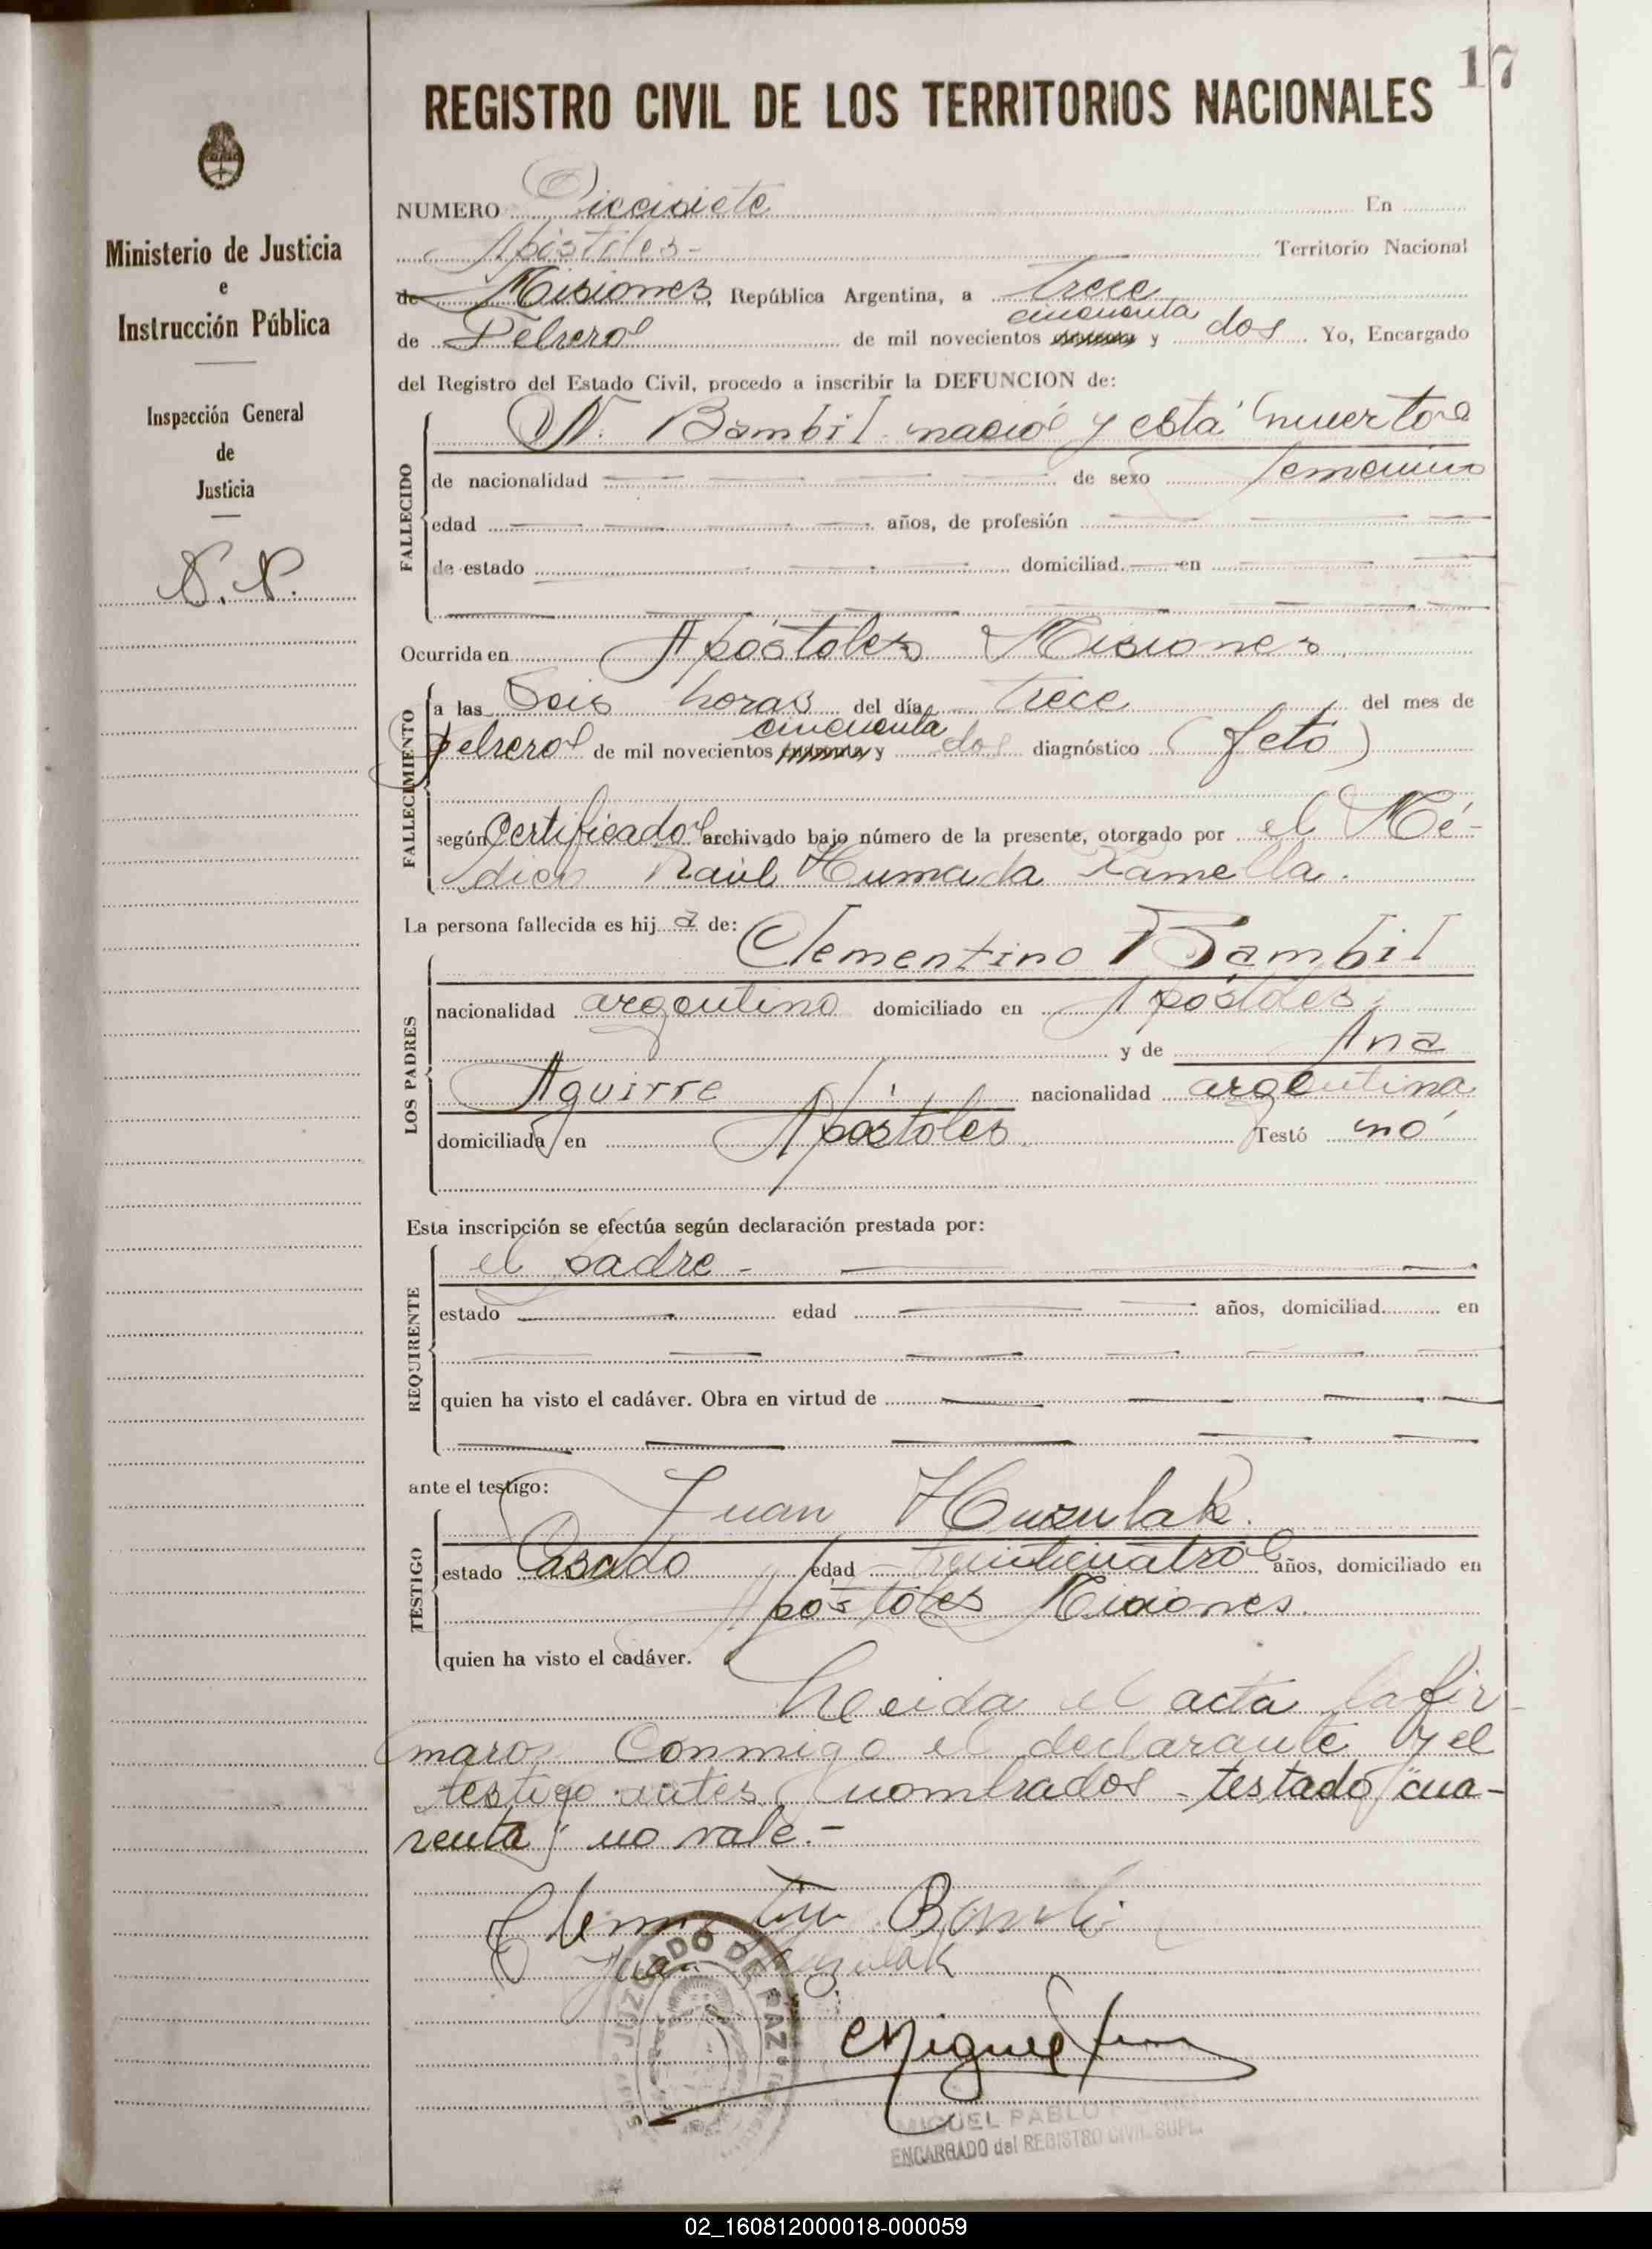 17
REGISTRO CIVIL DE LOS TERRITORIOS NACIONALES
Ministerio de Justicia
e
Instrucción Pública
Inspección General
de
Justicia
N.N.
NUMERO Diecisiete En
Apóstoles- Territorio Nacional
de Misiones, República Argentina, a trece
cincuenta
de Febrero de mil novecientos y dos Yo, Encargado
del Registro del Estado Civil, procedo a inscribir la DEFUNCION de:
FALLECIDO
N. Bambil nació y está muerto
de nacionalidad de sexo femenino
edad años, de profesión
de estado domiciliad en
Ocurrida en Apóstoles Misiones.
FALLECIMIENTO
a las Seis horas del día trece del mes de
cincuenta
febrero de mil novecientos y dos diagnóstico (feto)
según Certificado archivado bajo número de la presente, otorgado por el Mé-
dico Raúl Humada Ramella.
La persona fallecida es hija de:
LOS PADRES
Clementino Bambil
nacionalidad argentino domiciliado en Apóstoles
y de Ana
Aguirre nacionalidad argentina
domiciliada en Apostoles. Testó nó
Esta inscripción se efectúa según declaración prestada por:
REQUIRENTE
el padre -
estado edad años, domiciliad en
quien ha visto el cadáver. Obra en virtud de
ante el testigo:
TESTIGO
Juan Huzulak.
estado Casado edad treinticuatro años, domiciliado en
Apóstoles Misiones.
quien ha visto el cadáver.
Leida el acta la fir-
maron conmigo el declarante y el
testigo antes nombrados - testado "cua-
renta" no vale.-
Juan Huzulak
JUZGADO DE PAZ
Miguel
MIGUEL PABLO
ENCARGADO del REGISTRO CIVIL SUPL.
02_160812000018-000059